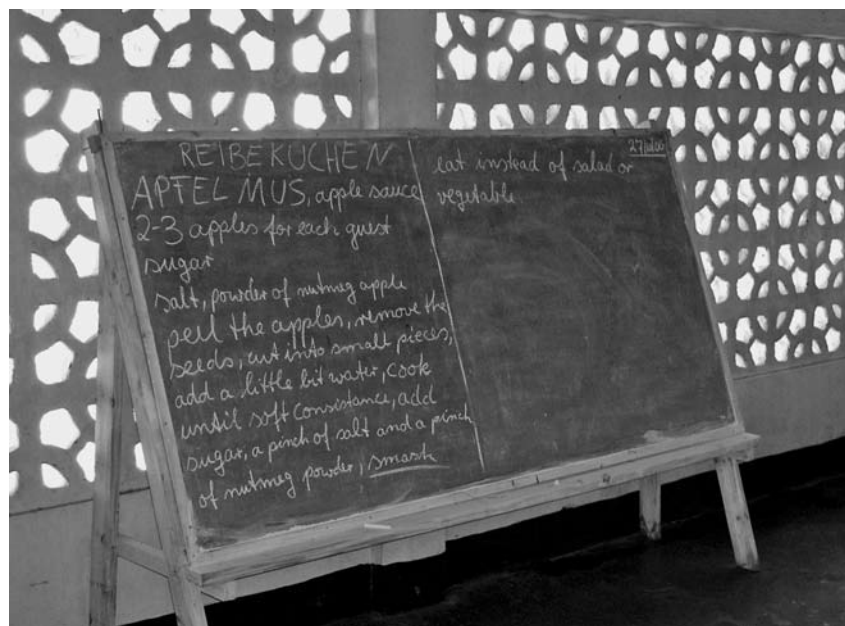 REIBEKUCHEN
APFELMUS, apple sauce
2-3 apples for each guest
sugar
salt, powder of nutmeg apple
peel the apples, remove the
seeds, cut into small pieces,
add a little bit water, cook
until soft consistance, add
sugar, a pinch of salt and a pinch
of nutmeg powder, smash
27
eat instead of salad or
vegetable.